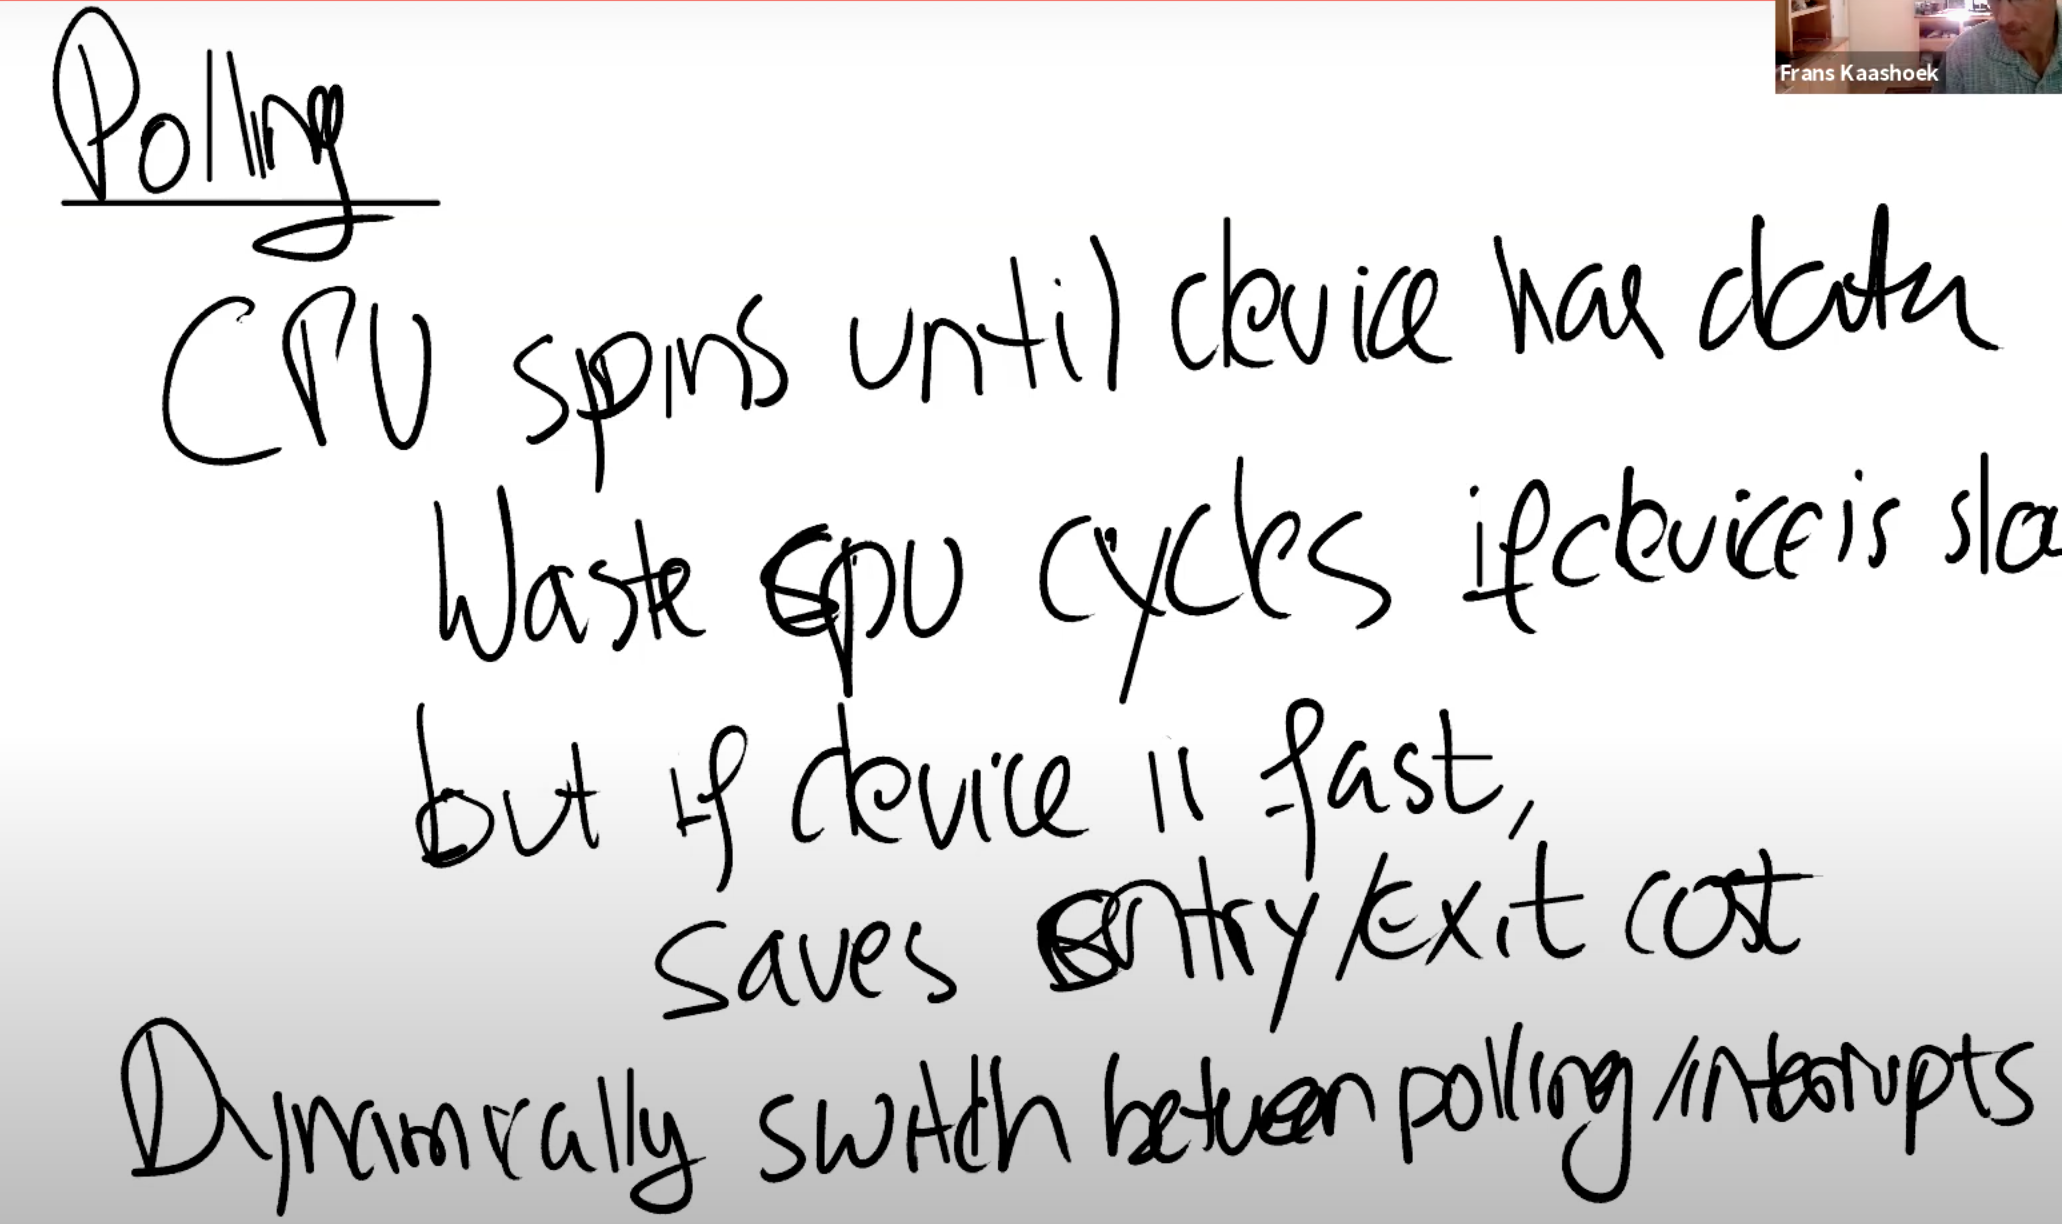 Polling
Frans Kaashoek
CPU spins until device has data
Waste cpu cycles if device is slo
but if device is fast,
saves entry/exit cost
Dynamically switch between polling/interrupts